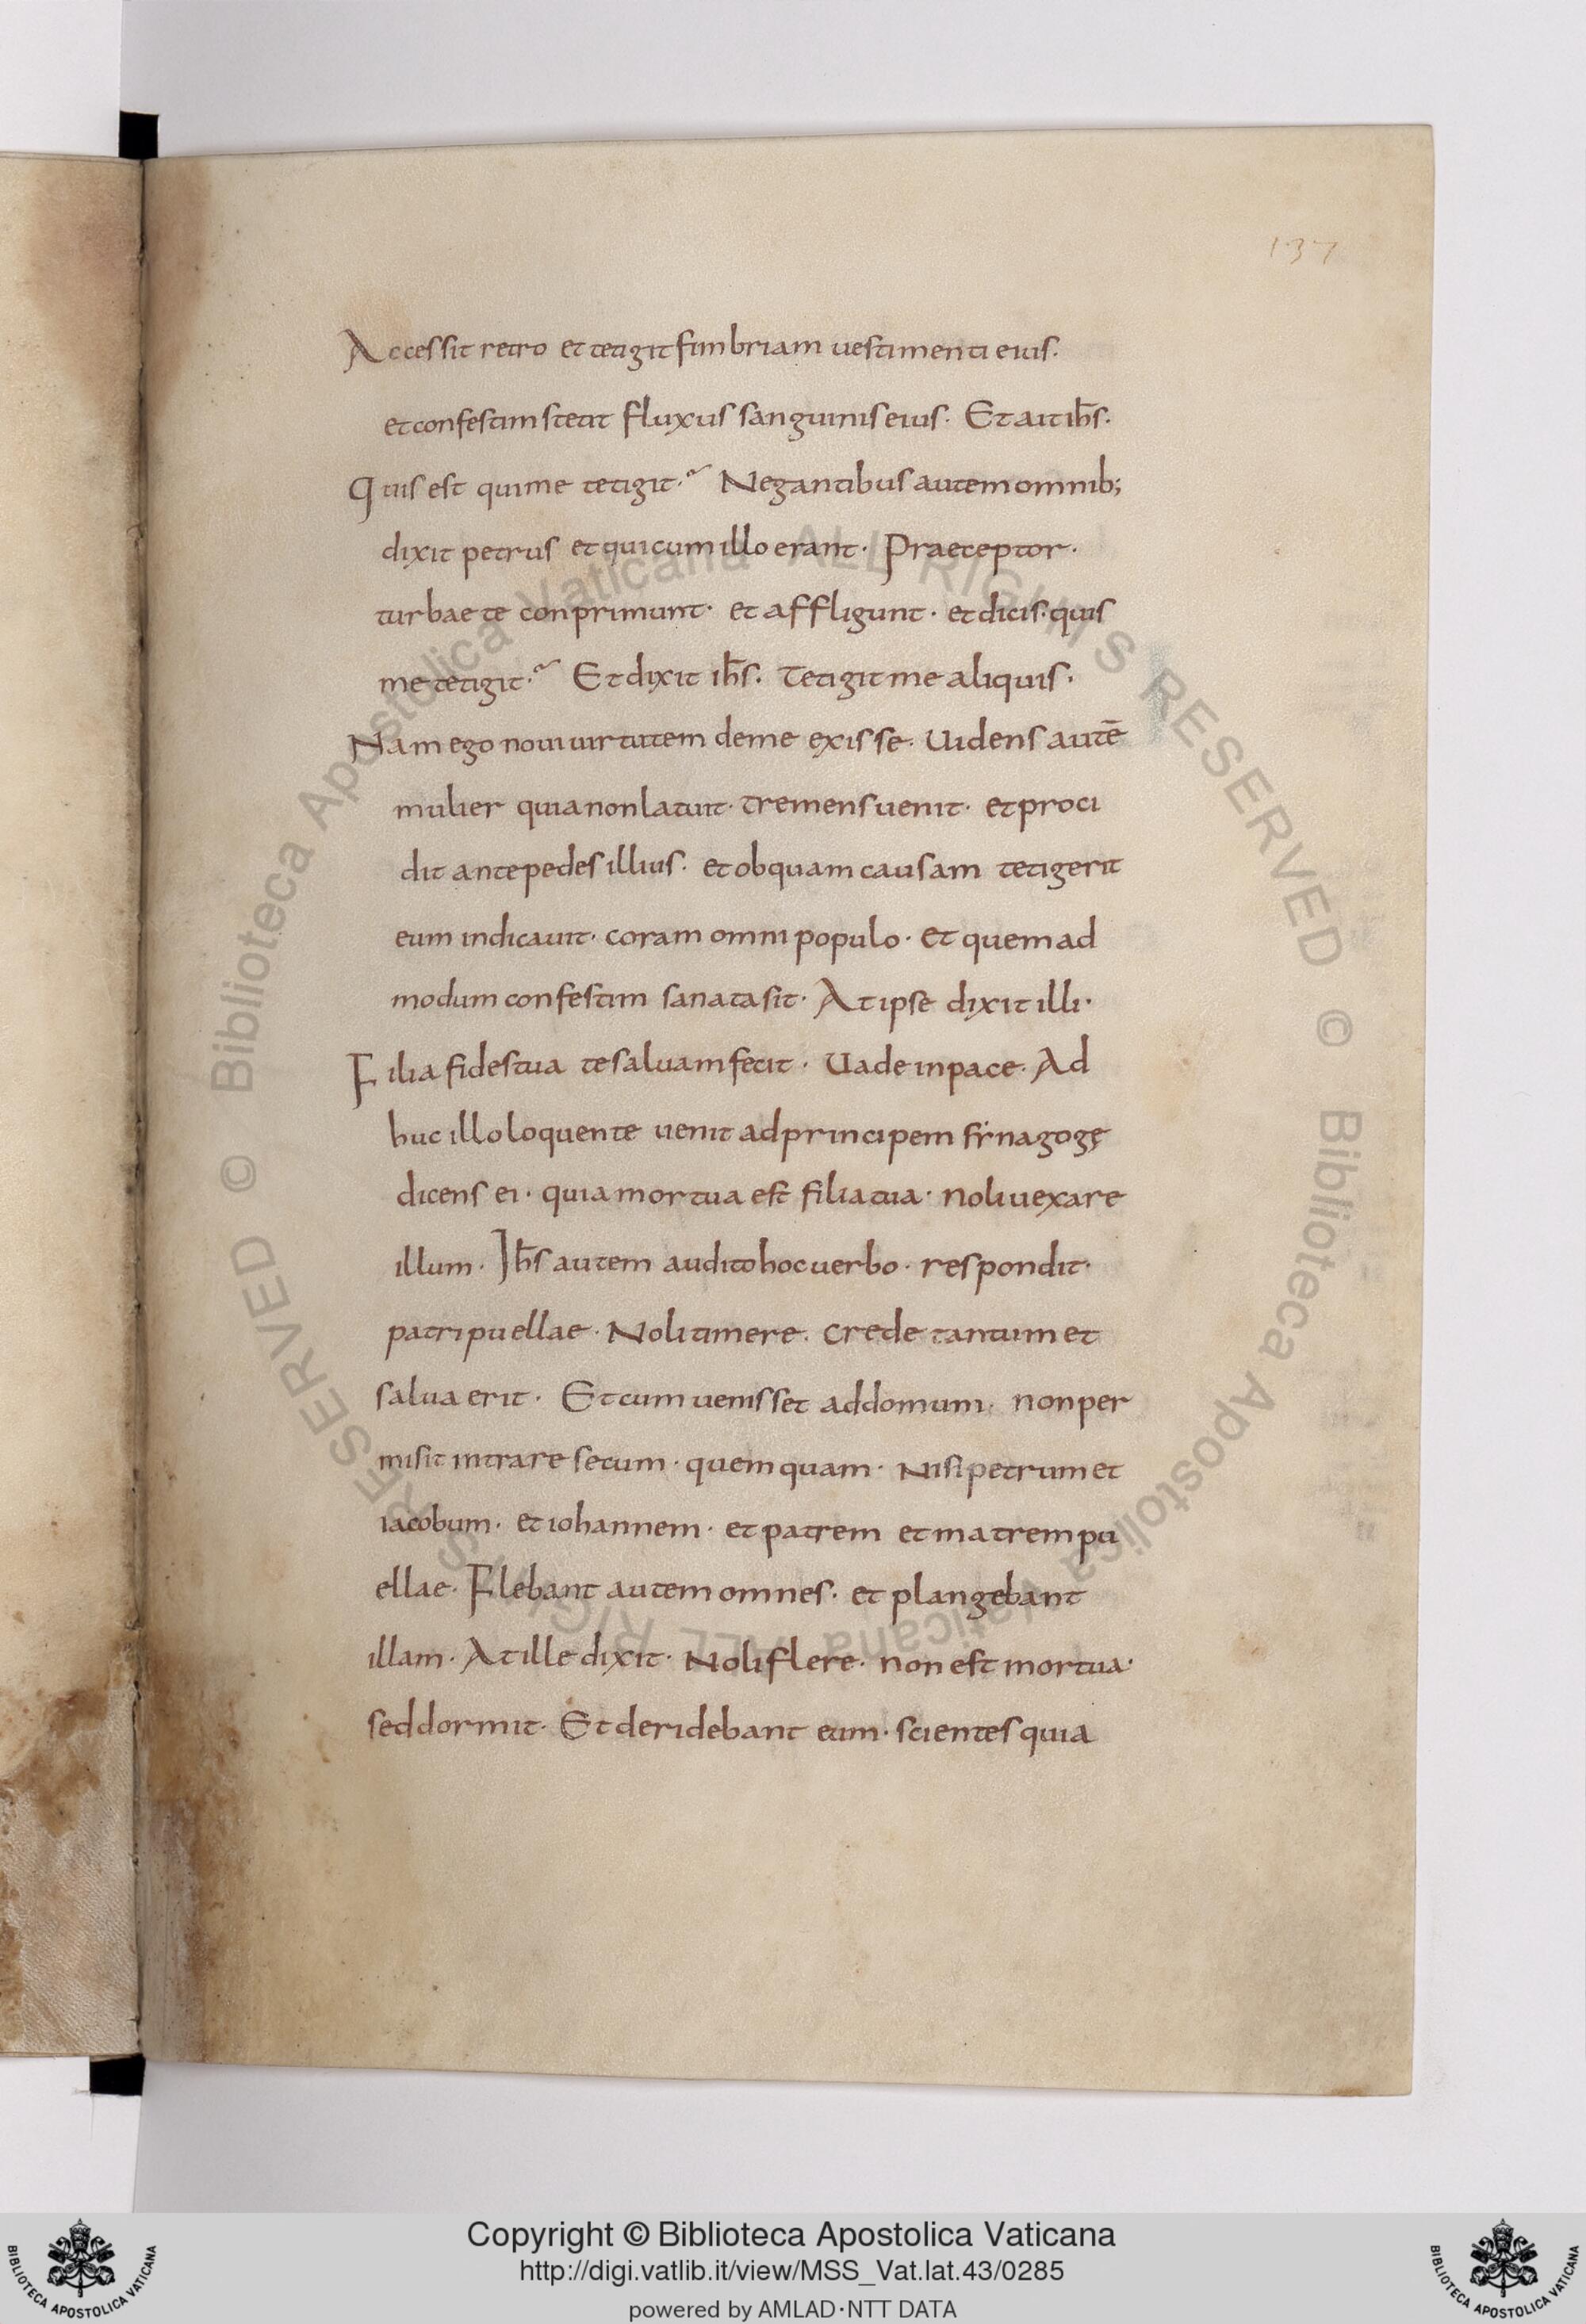 137
Accessit retro et tetigit fimbriam uestimenti eius·
et confestim stetit fluxus sanguinis eius· Et ait ih̄s·
Quis est qui me tetigit·? Negantibus autem omnib;
dixit petrus et qui cum illo erant· Praeceptor·
turbae te conprimunt· et affligunt· et dicis· quis
me tetigit·? Et dixit ih̄s· Tetigit me aliquis·
Nam ego noui uirtutem de me exisse· Uidens autē
mulier quia non latuit· tremens uenit· et proci
dit ante pedes illius· et ob quam causam tetigerit
eum indicauit· coram omni populo· et quem ad
modum confestim sanata sit· At ipse dixit illi·
Filia fides tua te saluam fecit· Uade in pace· Ad
huc illo loquente uenit ad principem sẏnagogę
dicens ei· quia mortua est filia tua· noli uexare
illum· Ih̄s autem audito hoc uerbo· respondit·
patri puellae· Noli timere· crede tantum et
salua erit· Et cum uenisset ad domum· non per
misit intrare secum· quemquam· Nisi petrum et
iacobum· et iohannem· et patrem et matrem pu
ellae· Flebant autem omnes· et plangebant
illam· At ille dixit· Noli flere· non est mortua·
sed dormit· Et deridebant eum· scientes quia
© Biblioteca Apostolica Vaticana ALL RIGHTS RESERVED © Biblioteca Apostolica Vaticana ALL RIGHTS RESERVED
BIBLIOTECA APOSTOLICA VATICANA
Copyright © Biblioteca Apostolica Vaticana
http://digi.vatlib.it/view/MSS_Vat.lat.43/0285
powered by AMLAD·NTT DATA
BIBLIOTECA APOSTOLICA VATICANA